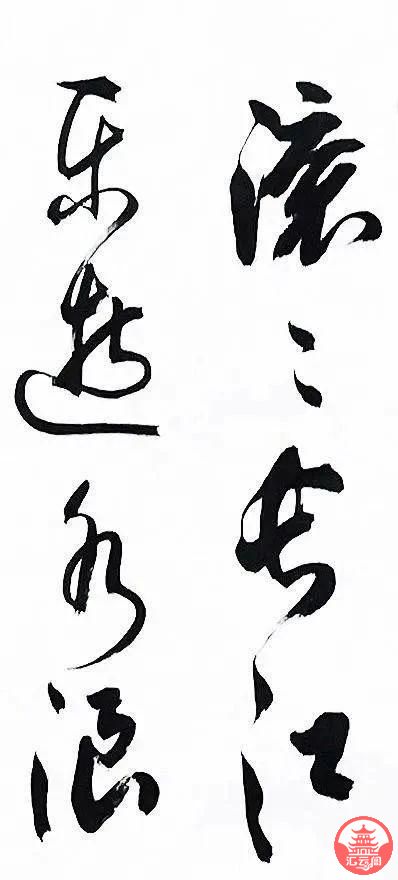 滚〻长江
东逝水浪
汇云阁